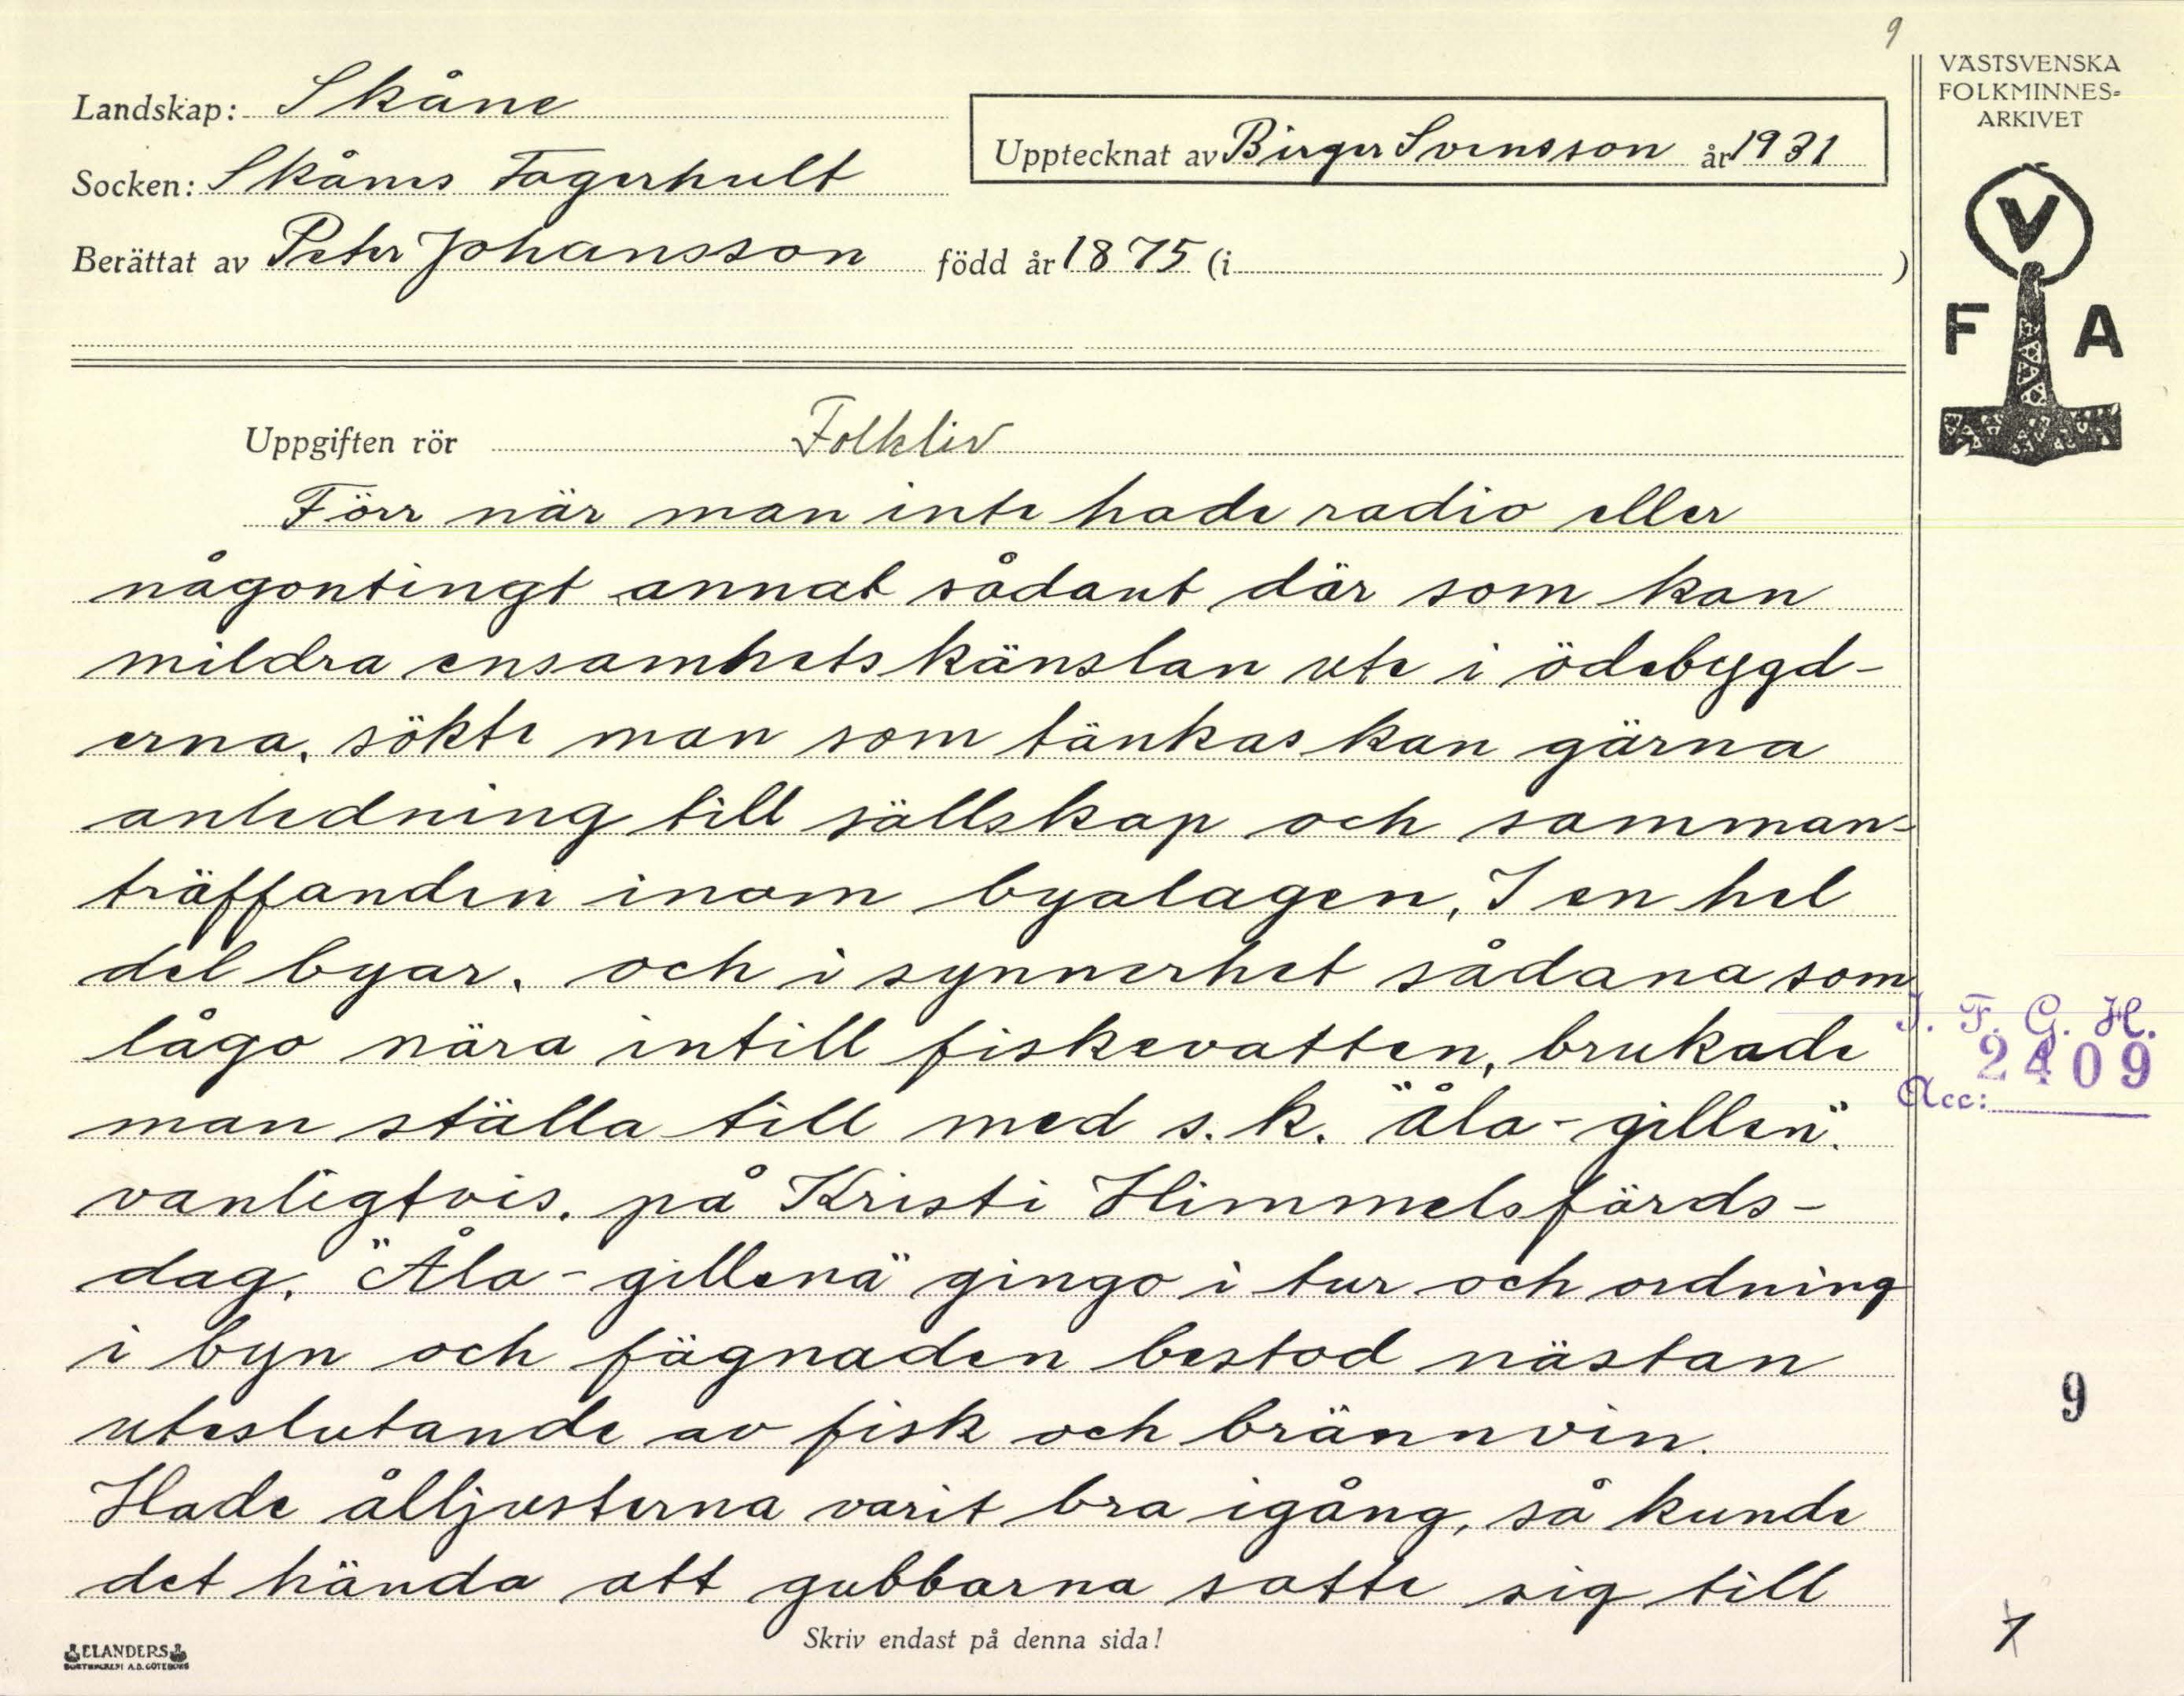 9
VÄSTSVENSKA
FOLKMINNES-
ARKIVET
Landskap: Skåne
Upptecknat av Birger Svensson år 1931
Socken: Skånes Fagerhult
Berättat av Peter Johansson född år 1875 (i )
V
F A
Uppgiften rör Folkliv
Förr när man inte hade radio eller
någontingt annat sådant där som kan
mildra ensamhetskänslan ute i ödebygd-
erna, sökte man som tänkas kan gärna
anledning till sällskap och samman-
träffanden inom byalagen, I en hel
del byar, och i synnerhet sådana som
lågo nära intill fiskevatten, brukade
man ställa till med s.k. "åla-gillen".
vanligtvis, på Kristi Himmelsfärds-
dag, "Åla-gillena" gingo i tur och ordning
i byn och fägnaden bestod nästan
uteslutande av fisk och brännvin.
Hade ålljusterna varit bra igång, så kunde
det hända att gubbarna satte sig till
I. F. G. H.
2409
Acc:
9
1
Skriv endast på denna sida!
ELANDERS
BOKTRYCKERI A.B. GÖTEBORG